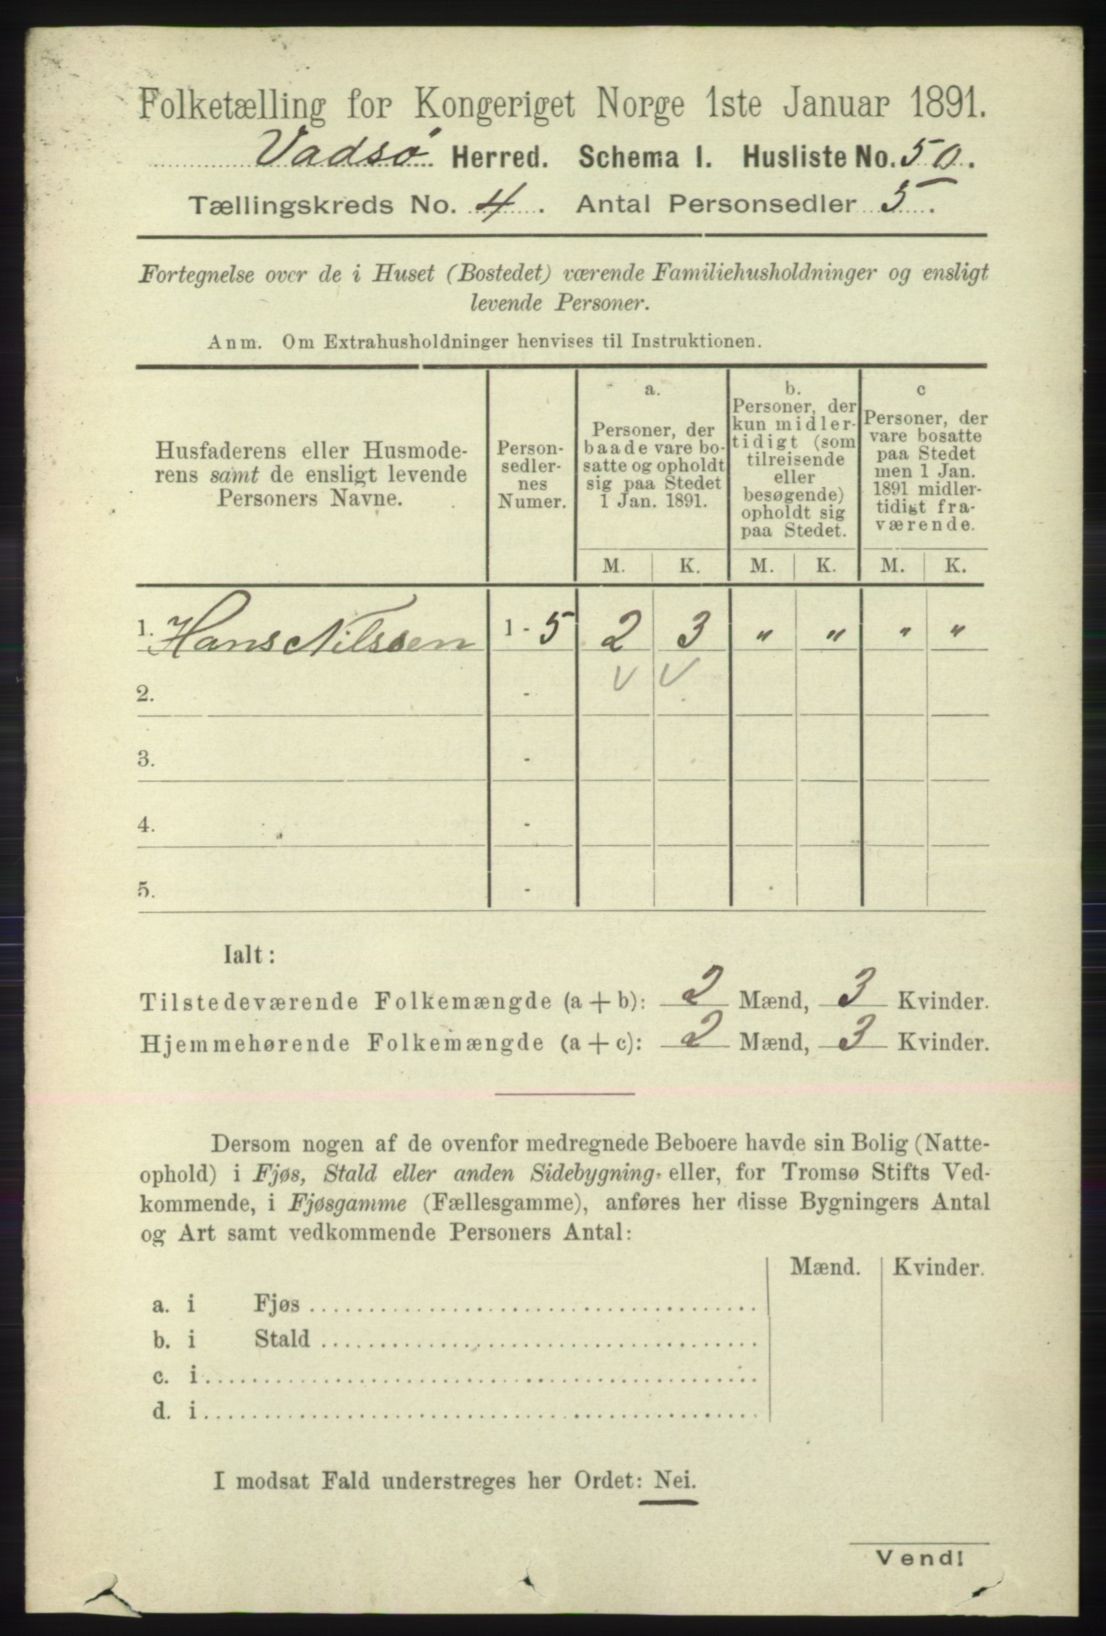 Folketælling for Kongeriget Norge 1ste Januar 1891.
Vadsø Herred. Schema I. Husliste No. 50.
Tællingskreds No. 4. Antal Personsedler 5.
Fortegnelse over de i Huset (Bostedet) værende Familiehusholdninger og ensligt
levende Personer.
Anm. Om Extrahusholdninger henvises til Instruktionen.
Husfaderens eller Husmode-
rens samt de ensligt levende
Personers Navne.
Person-
sedler-
nes
Numer.
a.
Personer, der
baade vare bo-
satte og opholdt
sig paa Stedet
1 Jan. 1891.
b.
Personer, der
kun midler-
tidigt (som
tilreisende
eller
besøgende)
opholdt sig
paa Stedet.
c
Personer, der
vare bosatte
paa Stedet
men 1 Jan.
1891 midler-
tidigt fra-
værende.
M. K. M. K. M. K.
1. Hans Nilssen 1 - 5 2 3 " " " "
2. -
3. -
4. -
5. -
Ialt:
Tilstedeværende Folkemængde (a + b): 2 Mænd, 3 Kvinder.
Hjemmehørende Folkemængde (a + c): 2 Mænd, 3 Kvinder.
Dersom nogen af de ovenfor medregnede Beboere havde sin Bolig (Natte-
ophold) i Fjøs, Stald eller anden Sidebygning eller, for Tromsø Stifts Ved-
kommende, i Fjøsgamme (Fællesgamme), anføres her disse Bygningers Antal
og Art samt vedkommende Personers Antal:
Mænd. Kvinder.
a. i Fjøs
b. i Stald
c. i
d. i
I modsat Fald understreges her Ordet: Nei.
Vend!